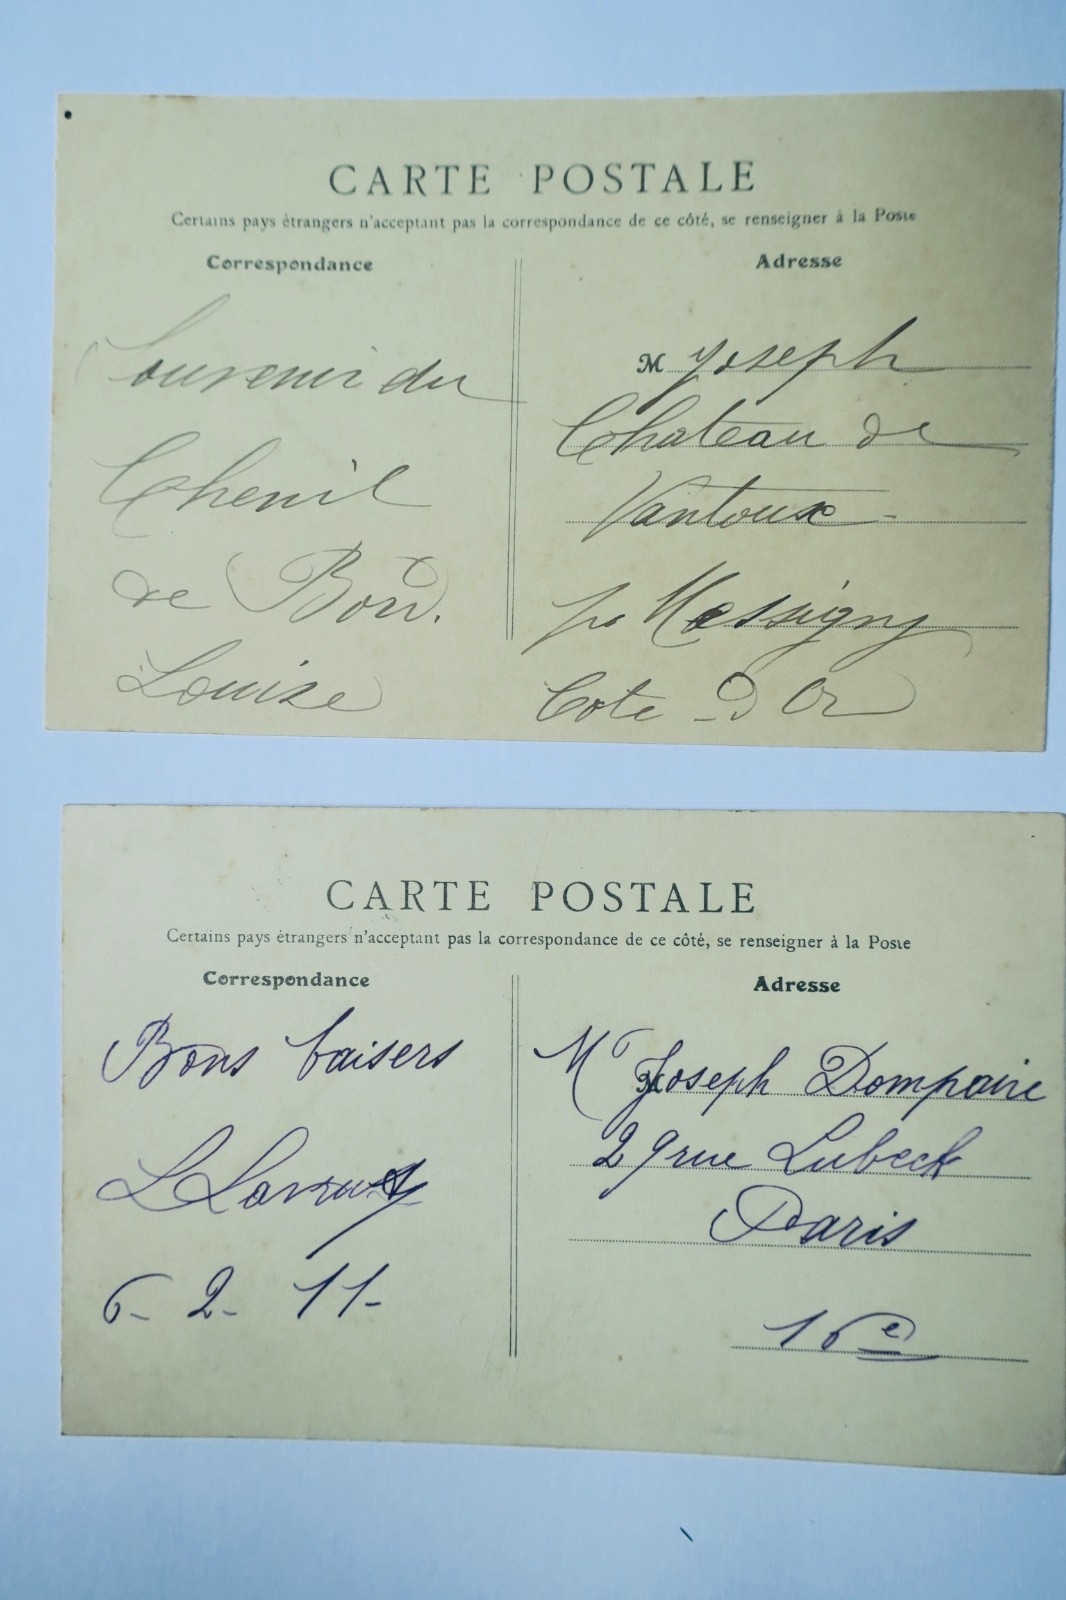 CARTE POSTALE
Certains pays étrangers n'acceptant pas la correspondance de ce côté, se renseigner à la Poste
Correspondance
Adresse
Souvenir du
Chenil
de
Louise
M Joseph
Chateau de
Vantoux -
Messigny
Cote - D Or
CARTE POSTALE
Certains pays étrangers n'acceptant pas la correspondance de ce côté, se renseigner à la Poste
Correspondance
Adresse
Bons baisers
6 - 2 - 11 -
M Joseph Dompaire
29 rue Lubeck
Paris
16e